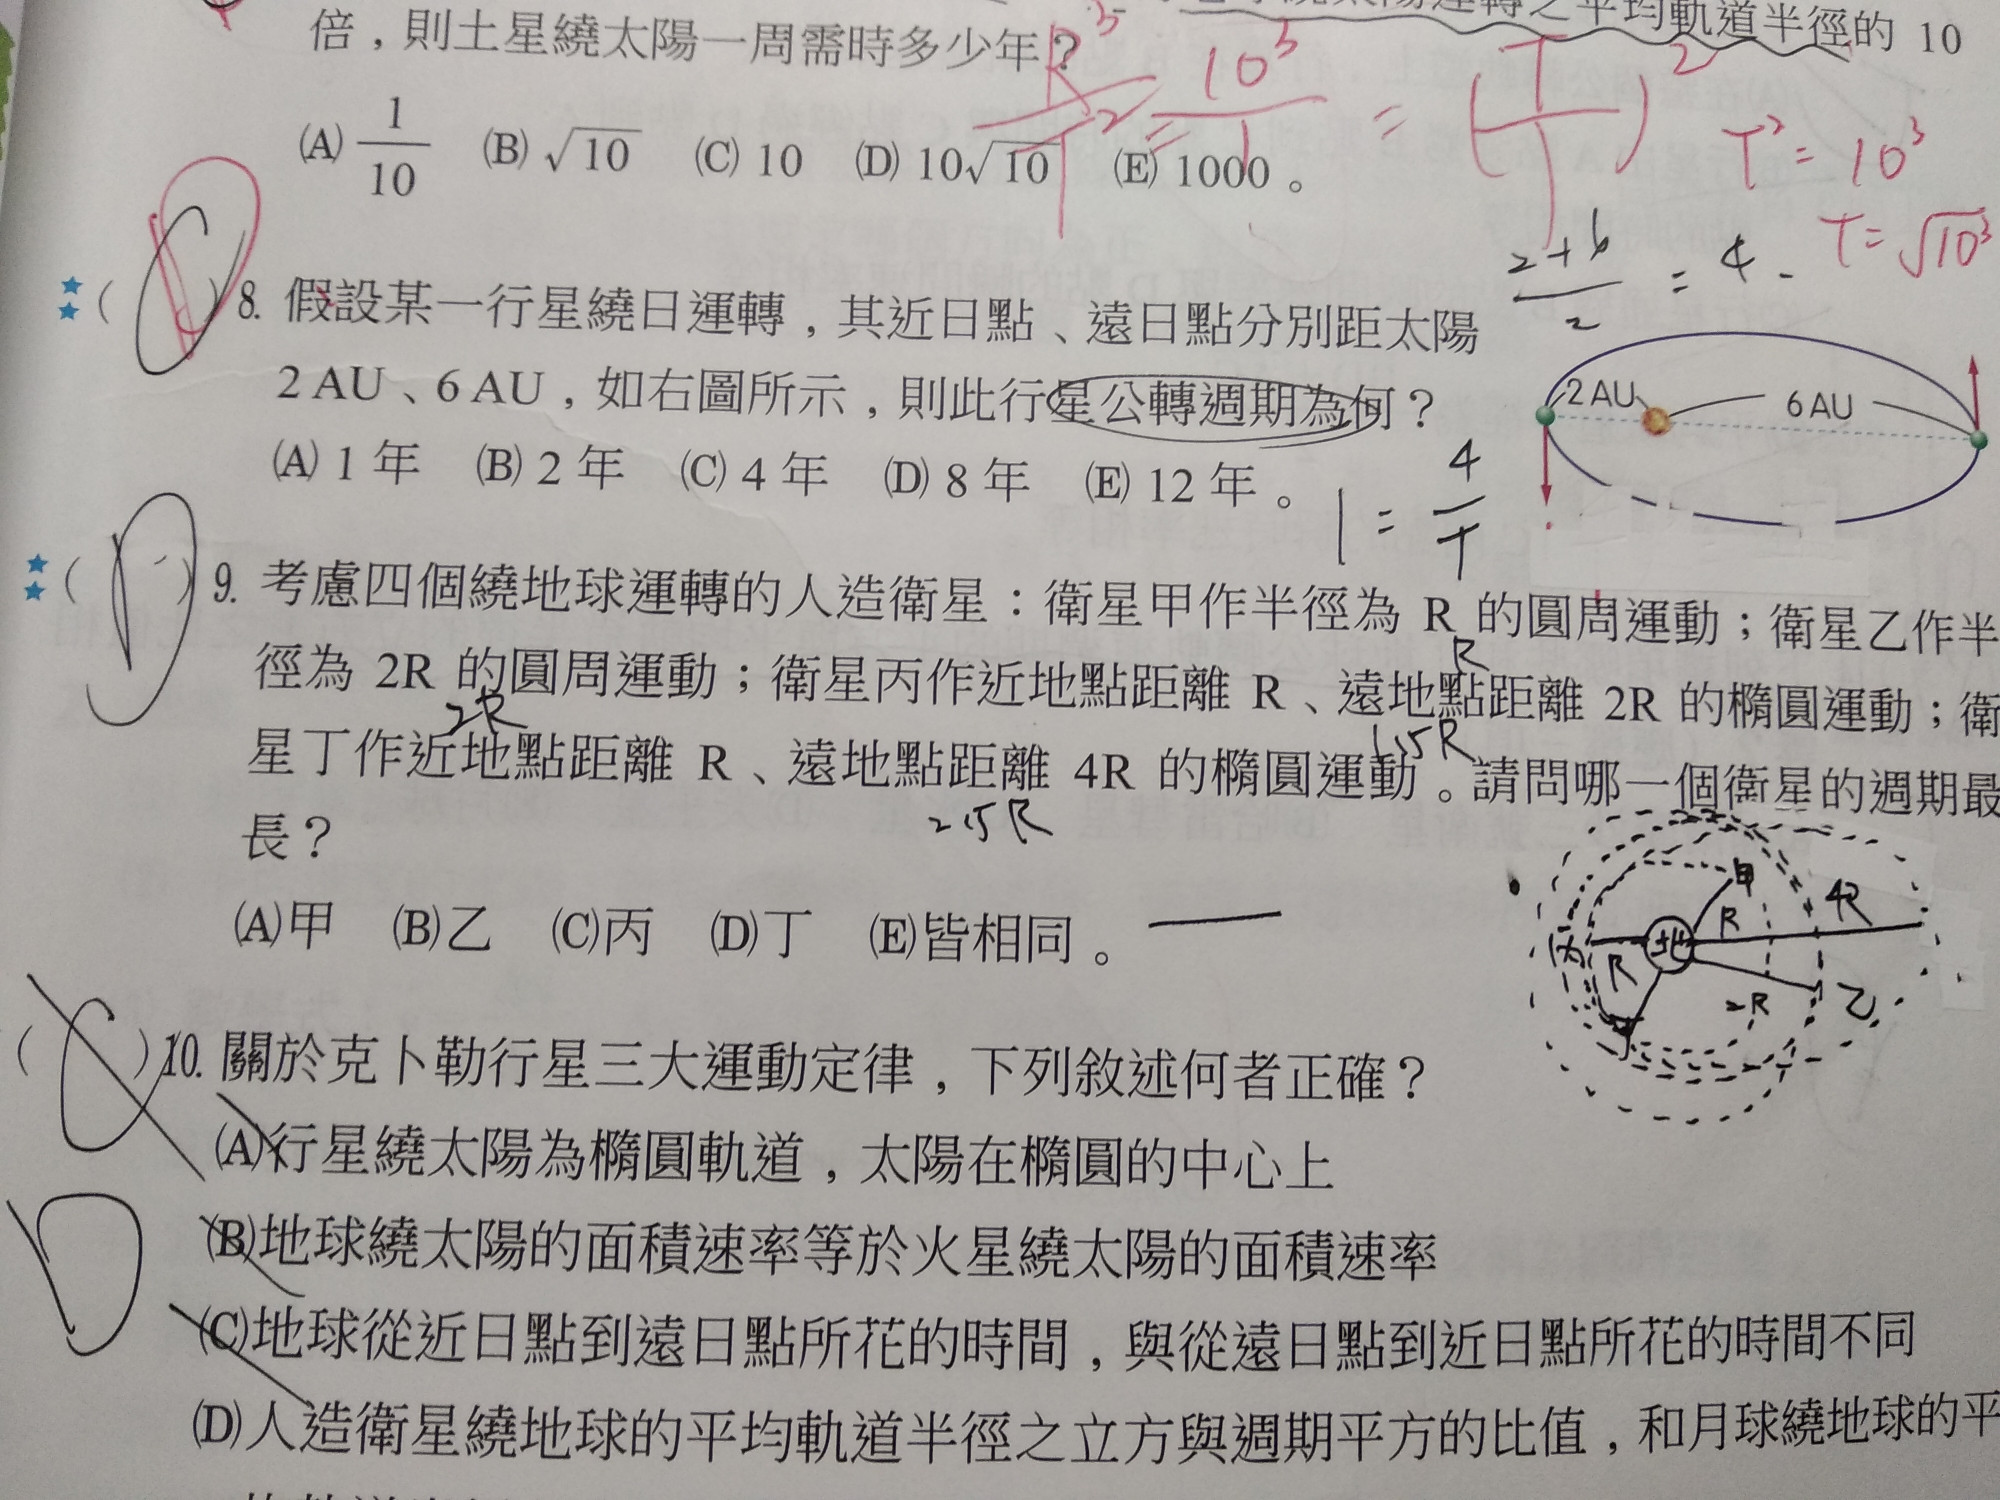 運轉之平均軌道半徑的 10
倍，則土星繞太陽一周需時多少年？
(A) 1/10 (B) √10 (C) 10 (D) 10√10 (E) 1000。
R³/T² = 10³/1 = (T/1)²
T² = 10³
T = √10³
(2+6)/2 = 4
( ) 8. 假設某一行星繞日運轉，其近日點、遠日點分別距太陽
2 AU、6 AU，如右圖所示，則此行星公轉週期為何？
(A) 1 年 (B) 2 年 (C) 4 年 (D) 8 年 (E) 12 年。
2 AU 6 AU
1 = 4/T
( ) 9. 考慮四個繞地球運轉的人造衛星：衛星甲作半徑為 R 的圓周運動；衛星乙作半
R
徑為 2R 的圓周運動；衛星丙作近地點距離 R、遠地點距離 2R 的橢圓運動；衛
2R 1.5R
星丁作近地點距離 R、遠地點距離 4R 的橢圓運動。請問哪一個衛星的週期最
2.5R
長？
(A)甲 (B)乙 (C)丙 (D)丁 (E)皆相同。
甲 R 4R
丙 R 地 2R 乙
丁
( C ) 10. 關於克卜勒行星三大運動定律，下列敘述何者正確？
(A)行星繞太陽為橢圓軌道，太陽在橢圓的中心上
(B)地球繞太陽的面積速率等於火星繞太陽的面積速率
D
(C)地球從近日點到遠日點所花的時間，與從遠日點到近日點所花的時間不同
(D)人造衛星繞地球的平均軌道半徑之立方與週期平方的比值，和月球繞地球的平